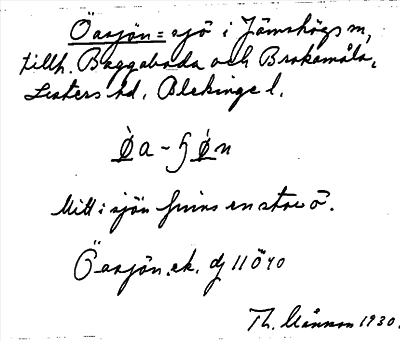 Öasjön = sjö i Jämshögs sn,
tillh. Baggaboda och Brokamåla,
Listers hd, Blekinge l.
Mitt i sjön finns en stor ö.
Öasjön, ek. dj 11Ö40
Th. Månsson 1930.